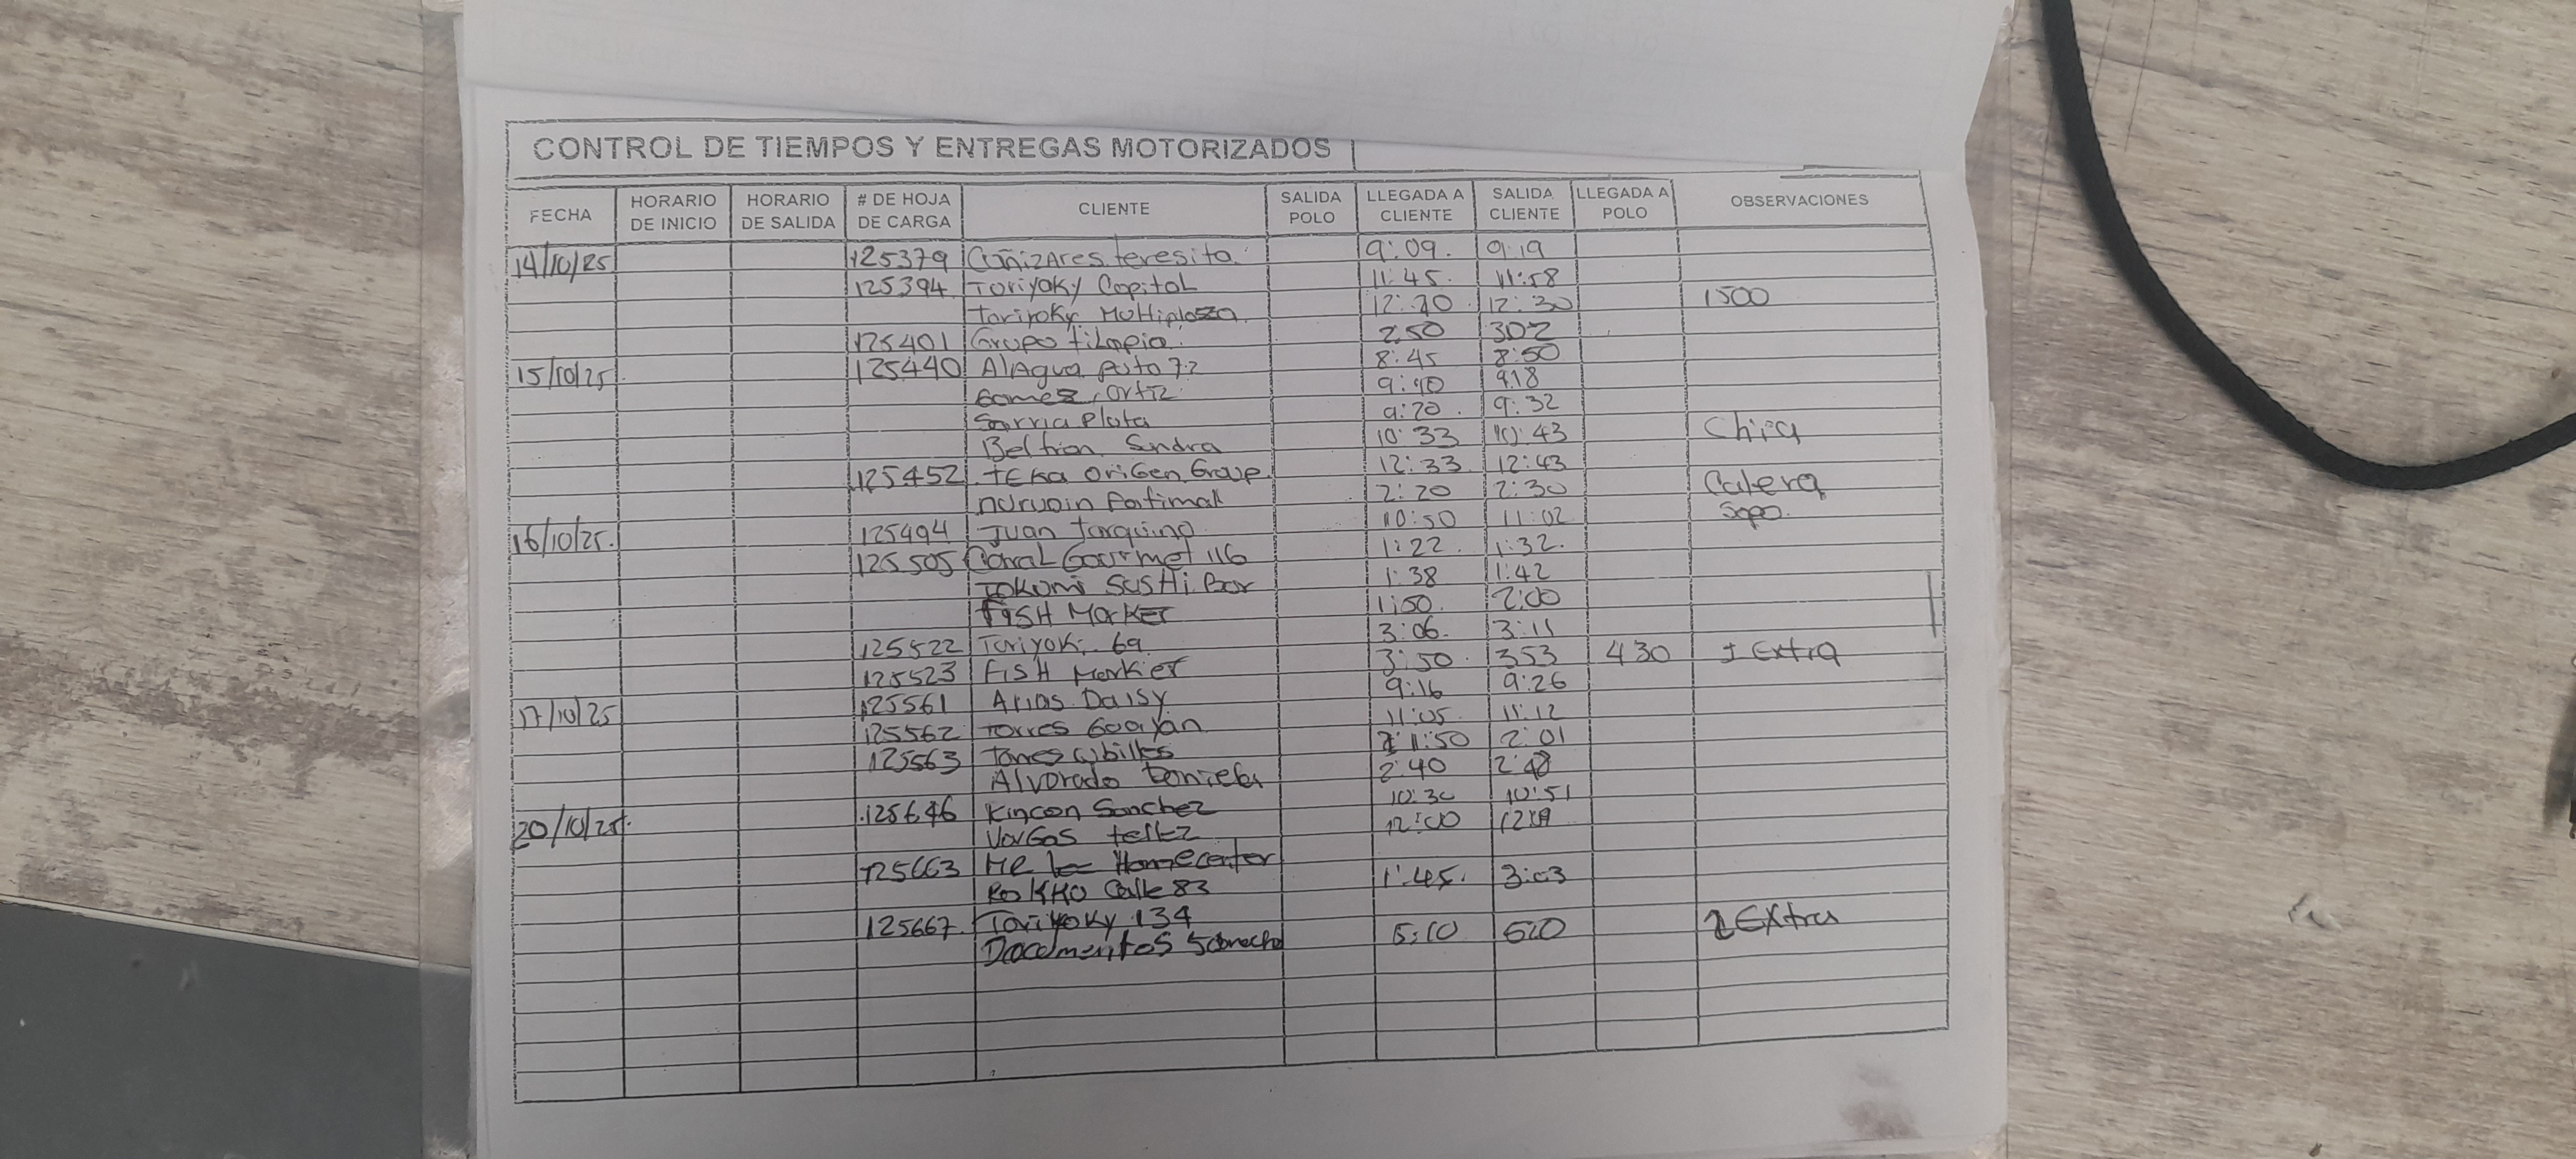 CONTROL DE TIEMPOS Y ENTREGAS MOTORIZADOS
FECHA HORARIO DE INICIO HORARIO DE SALIDA # DE HOJA DE CARGA CLIENTE SALIDA POLO LLEGADA A CLIENTE SALIDA CLIENTE LLEGADA A POLO OBSERVACIONES
14/10/25 125379 Cañizares teresita 9:09 9:19
125394 Toriyoky Capital 11:45 11:58
Toriyoky Multiplaza 12:20 12:30 1500
125401 Grupo tilapia 2:50 302
15/10/25 125440 AlAgua Pvto 72 8:45 8:50
Gomez Ortiz 9:10 9:18
Sarria Plata 9:20 9:32
Beltran Sandra 10:33 10:43 Chia
125452 TEKA Origen Group 12:33 12:43
2:20 2:30 Calera
16/10/25 125494 Juan Tarquino 10:50 11:02 Sopo
125505 Corral Gourmet 116 1:22 1:32
Tokumi SUSHi Bar 1:38 1:42
FISH Market 1:50 2:00
125522 Toriyoki 69 3:06 3:11
125523 FISH Market 3:50 353 430 1 Extra
17/10/25 125561 Arias Daisy 9:16 9:26
125562 Torres Guayan 11:05 11:12
125563 Torres 1:50 2:01
Alvarado Daniela 2:40 2:48
20/10/25 125646 Rincon Sanchez 10:30 10:51
VarGas tellez 12:00 12:19
125663 Homecenter
RoKKO Calle 83 1:45 3:03
125667 Toriyoky 134 5:10 520 2 Extras
Documentos Sabrecha